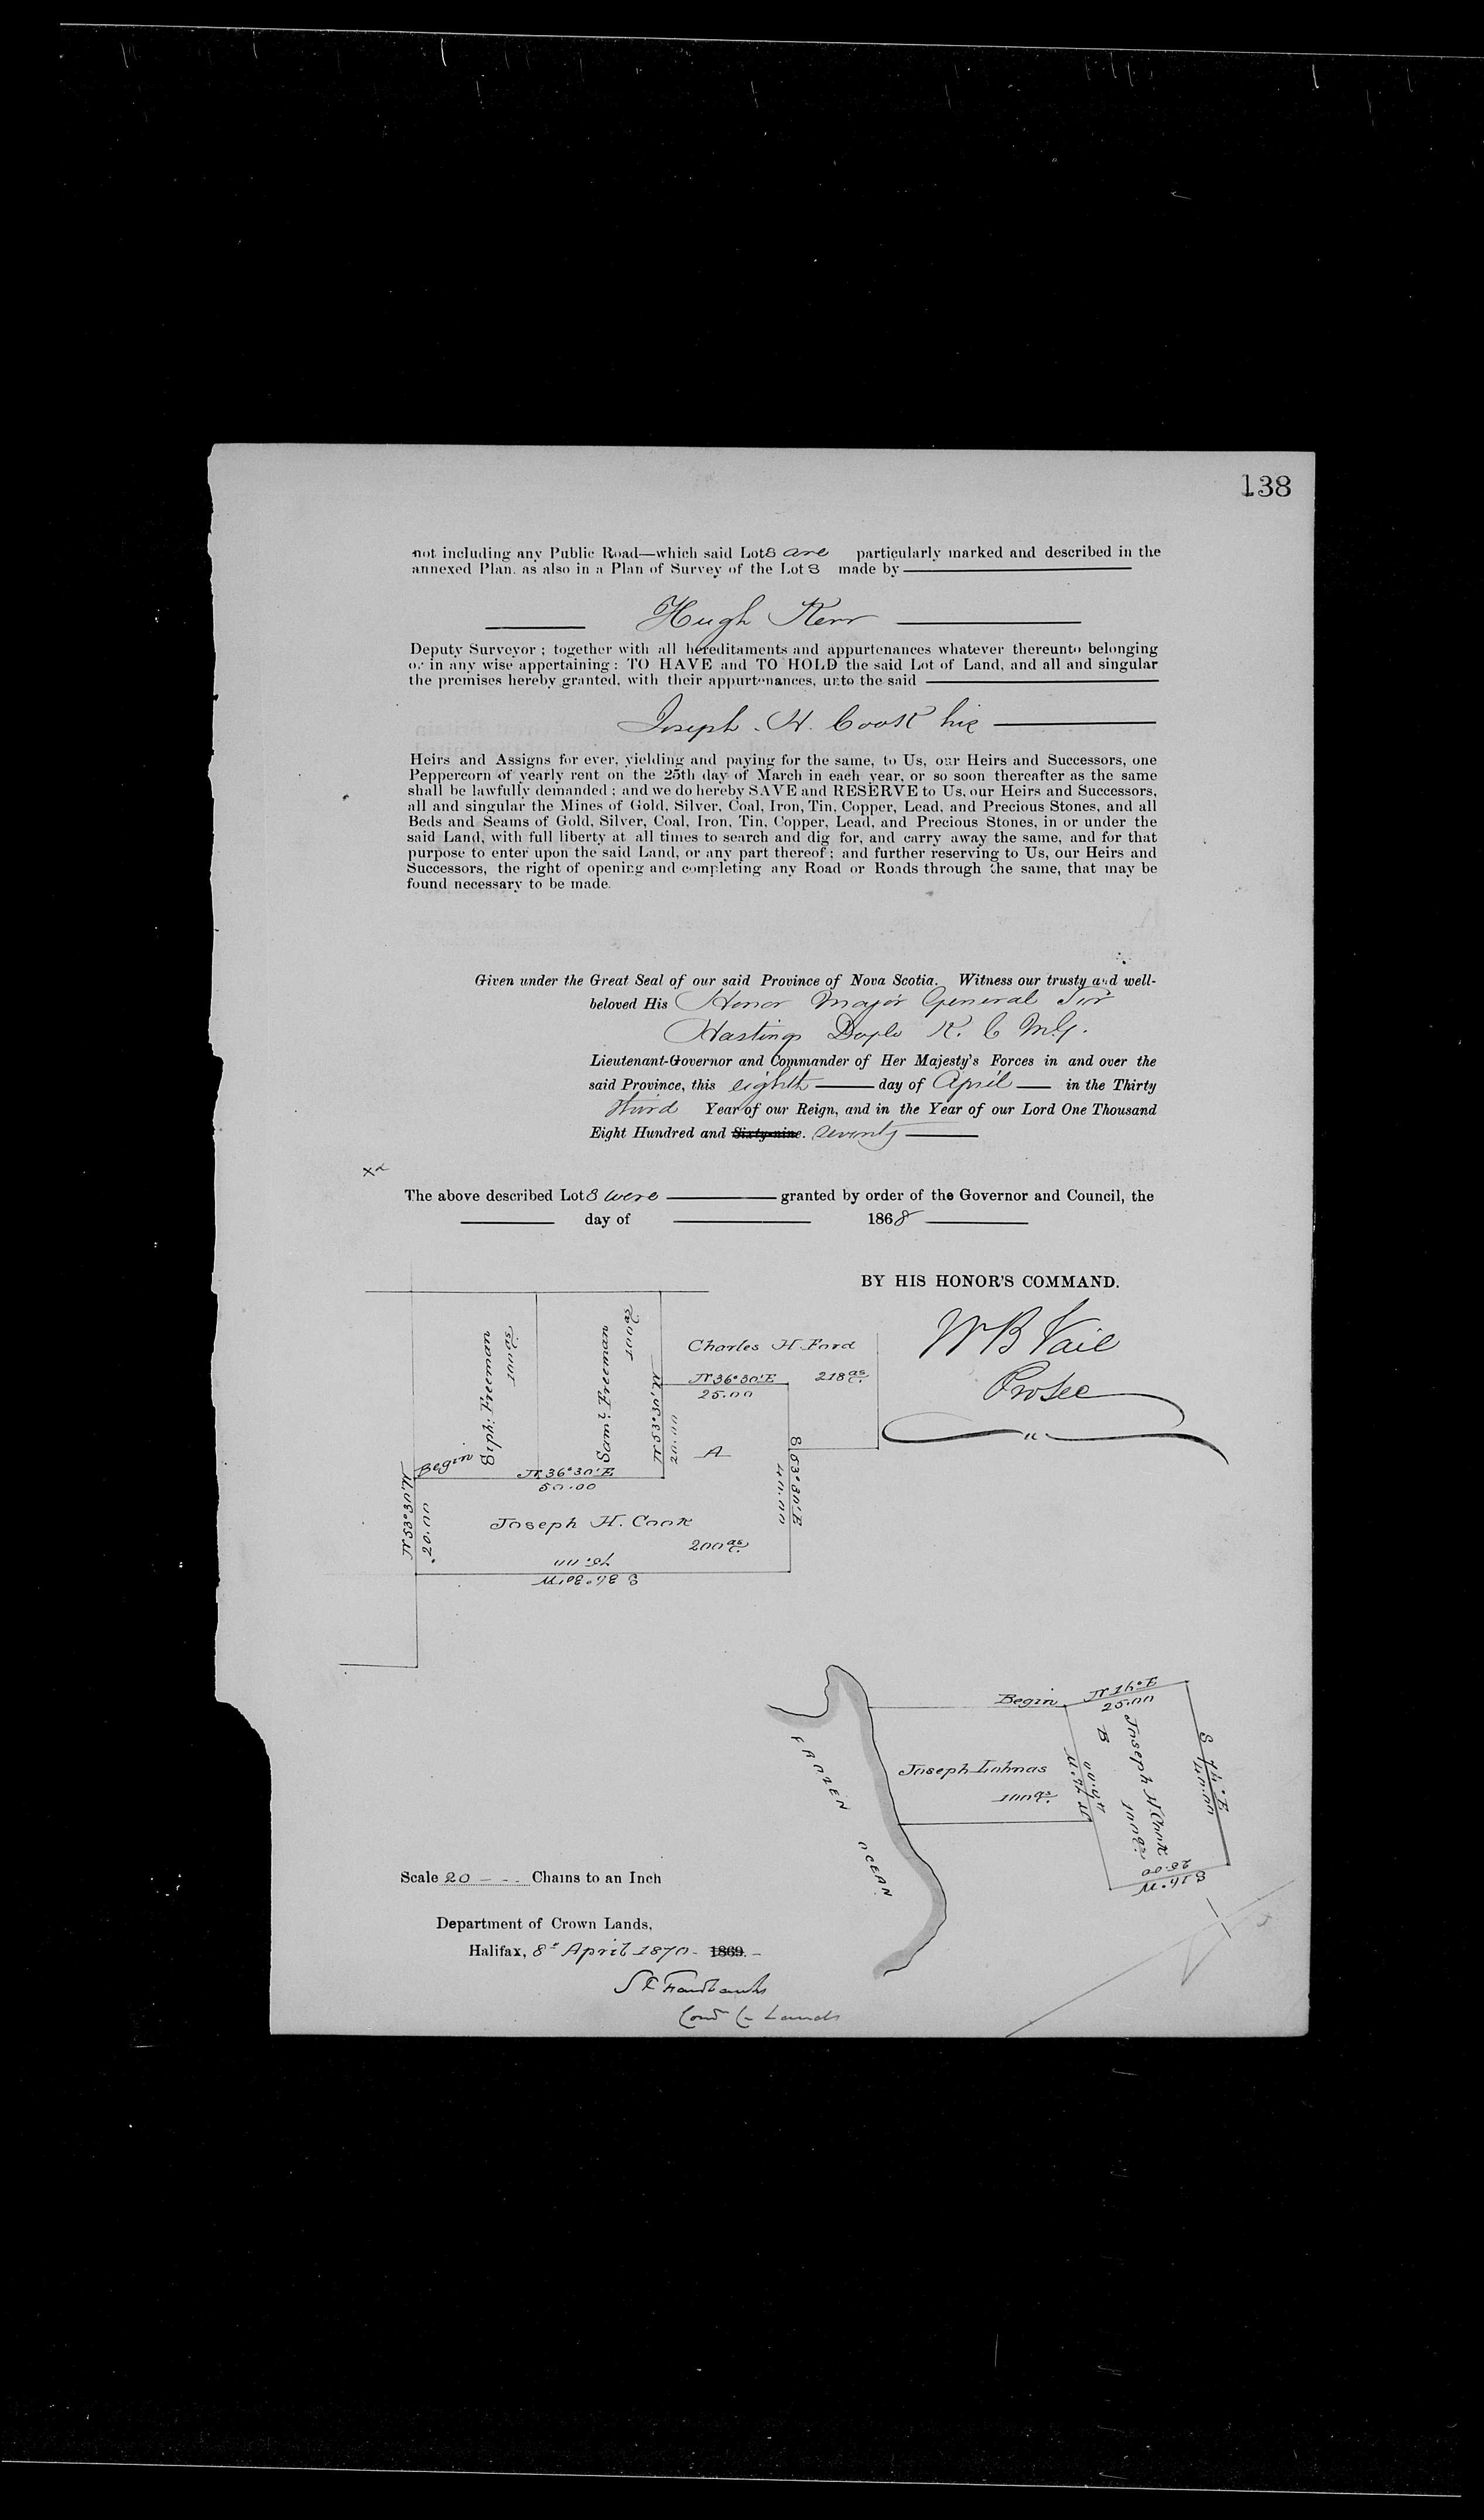 138
not including any Public Road—which said Lots are particularly marked and described in the
annexed Plan, as also in a Plan of Survey of the Lots made by
Hugh Kerr
Deputy Surveyor; together with all hereditaments and appurtenances whatever thereunto belonging
or in any wise appertaining: TO HAVE and TO HOLD the said Lot of Land, and all and singular
the premises hereby granted, with their appurtenances, unto the said
Joseph. H. Cook his
Heirs and Assigns for ever, yielding and paying for the same, to Us, our Heirs and Successors, one
Peppercorn of yearly rent on the 25th day of March in each year, or so soon thereafter as the same
shall be lawfully demanded; and we do hereby SAVE and RESERVE to Us, our Heirs and Successors,
all and singular the Mines of Gold, Silver, Coal, Iron, Tin, Copper, Lead, and Precious Stones, and all
Beds and Seams of Gold, Silver, Coal, Iron, Tin, Copper, Lead, and Precious Stones, in or under the
said Land, with full liberty at all times to search and dig for, and carry away the same, and for that
purpose to enter upon the said Land, or any part thereof; and further reserving to Us, our Heirs and
Successors, the right of opening and completing any Road or Roads through the same, that may be
found necessary to be made.
Given under the Great Seal of our said Province of Nova Scotia. Witness our trusty and well-
beloved His Honor Major General Sir
Hastings Doyle K. C M.G.
Lieutenant-Governor and Commander of Her Majesty's Forces in and over the
said Province, this eighth day of April in the Thirty
third Year of our Reign, and in the Year of our Lord One Thousand
Eight Hundred and Sixty-nine. Seventy
The above described Lots were granted by order of the Governor and Council, the
day of 1868
BY HIS HONOR'S COMMAND.
W B Vail
Pro Sec
Siph: Freeman
100 as
Saml. Freeman
100 as
Charles H Ford
218 as
N 36°30' E
25.00
N 53°30' W
20.00
A
S 53°30' E
40.00
Begin
N 36°30' E
50.00
N 53°30' W
20.00
Joseph H. Cook
200 as
75.00
S 36°30' W
Begin
N 16° E
25.00
FROZEN OCEAN
Joseph Lohnas
100 as
N 74 W
40.00
B
Joseph H Cook
100 as
S 74° E
40.00
25.00
S 16° W
Scale 20 Chains to an Inch
Department of Crown Lands,
Halifax, 8th April 1870 - 1869.
S P Fairbanks
Comr Cn Lands